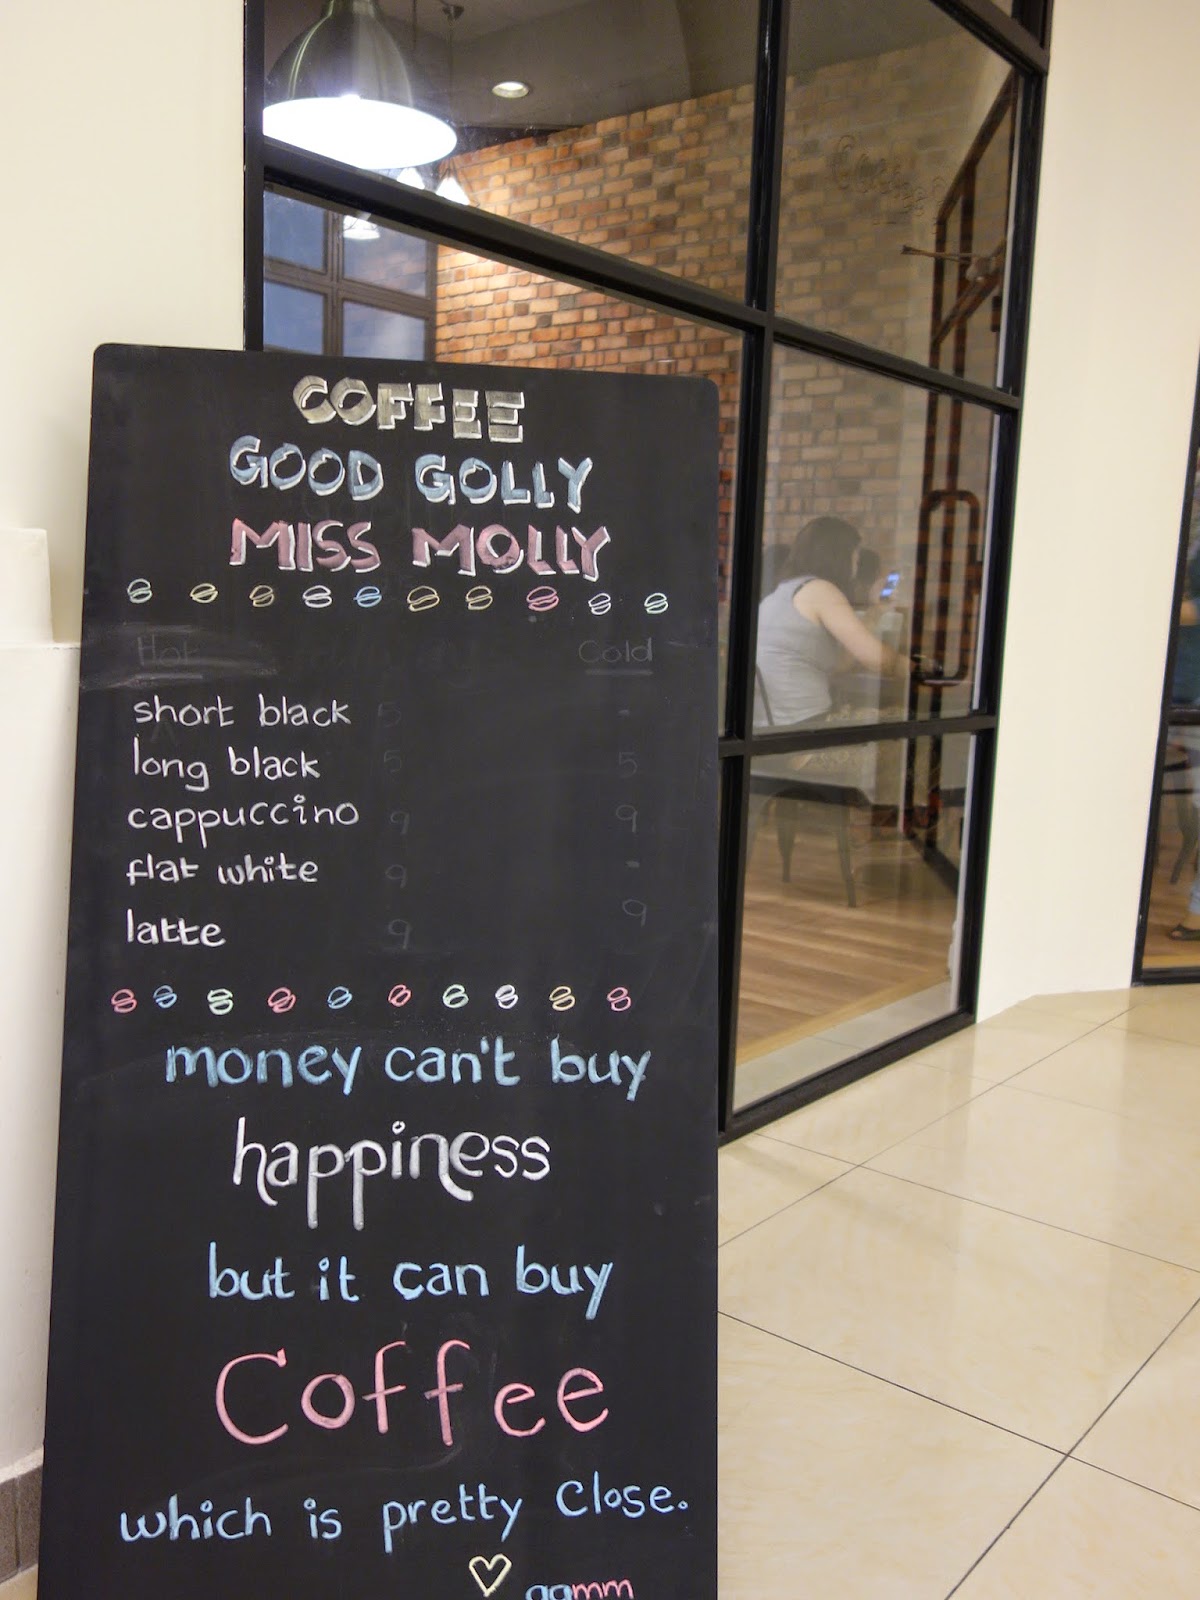 COFFEE
GOOD GOLLY
MISS MOLLY
Hot Cold
short black 5 -
long black 5 5
cappuccino 9 9
flat white 9 -
latte 9 9
money can't buy
happiness
but it can buy
Coffee
which is pretty close.
ggmm